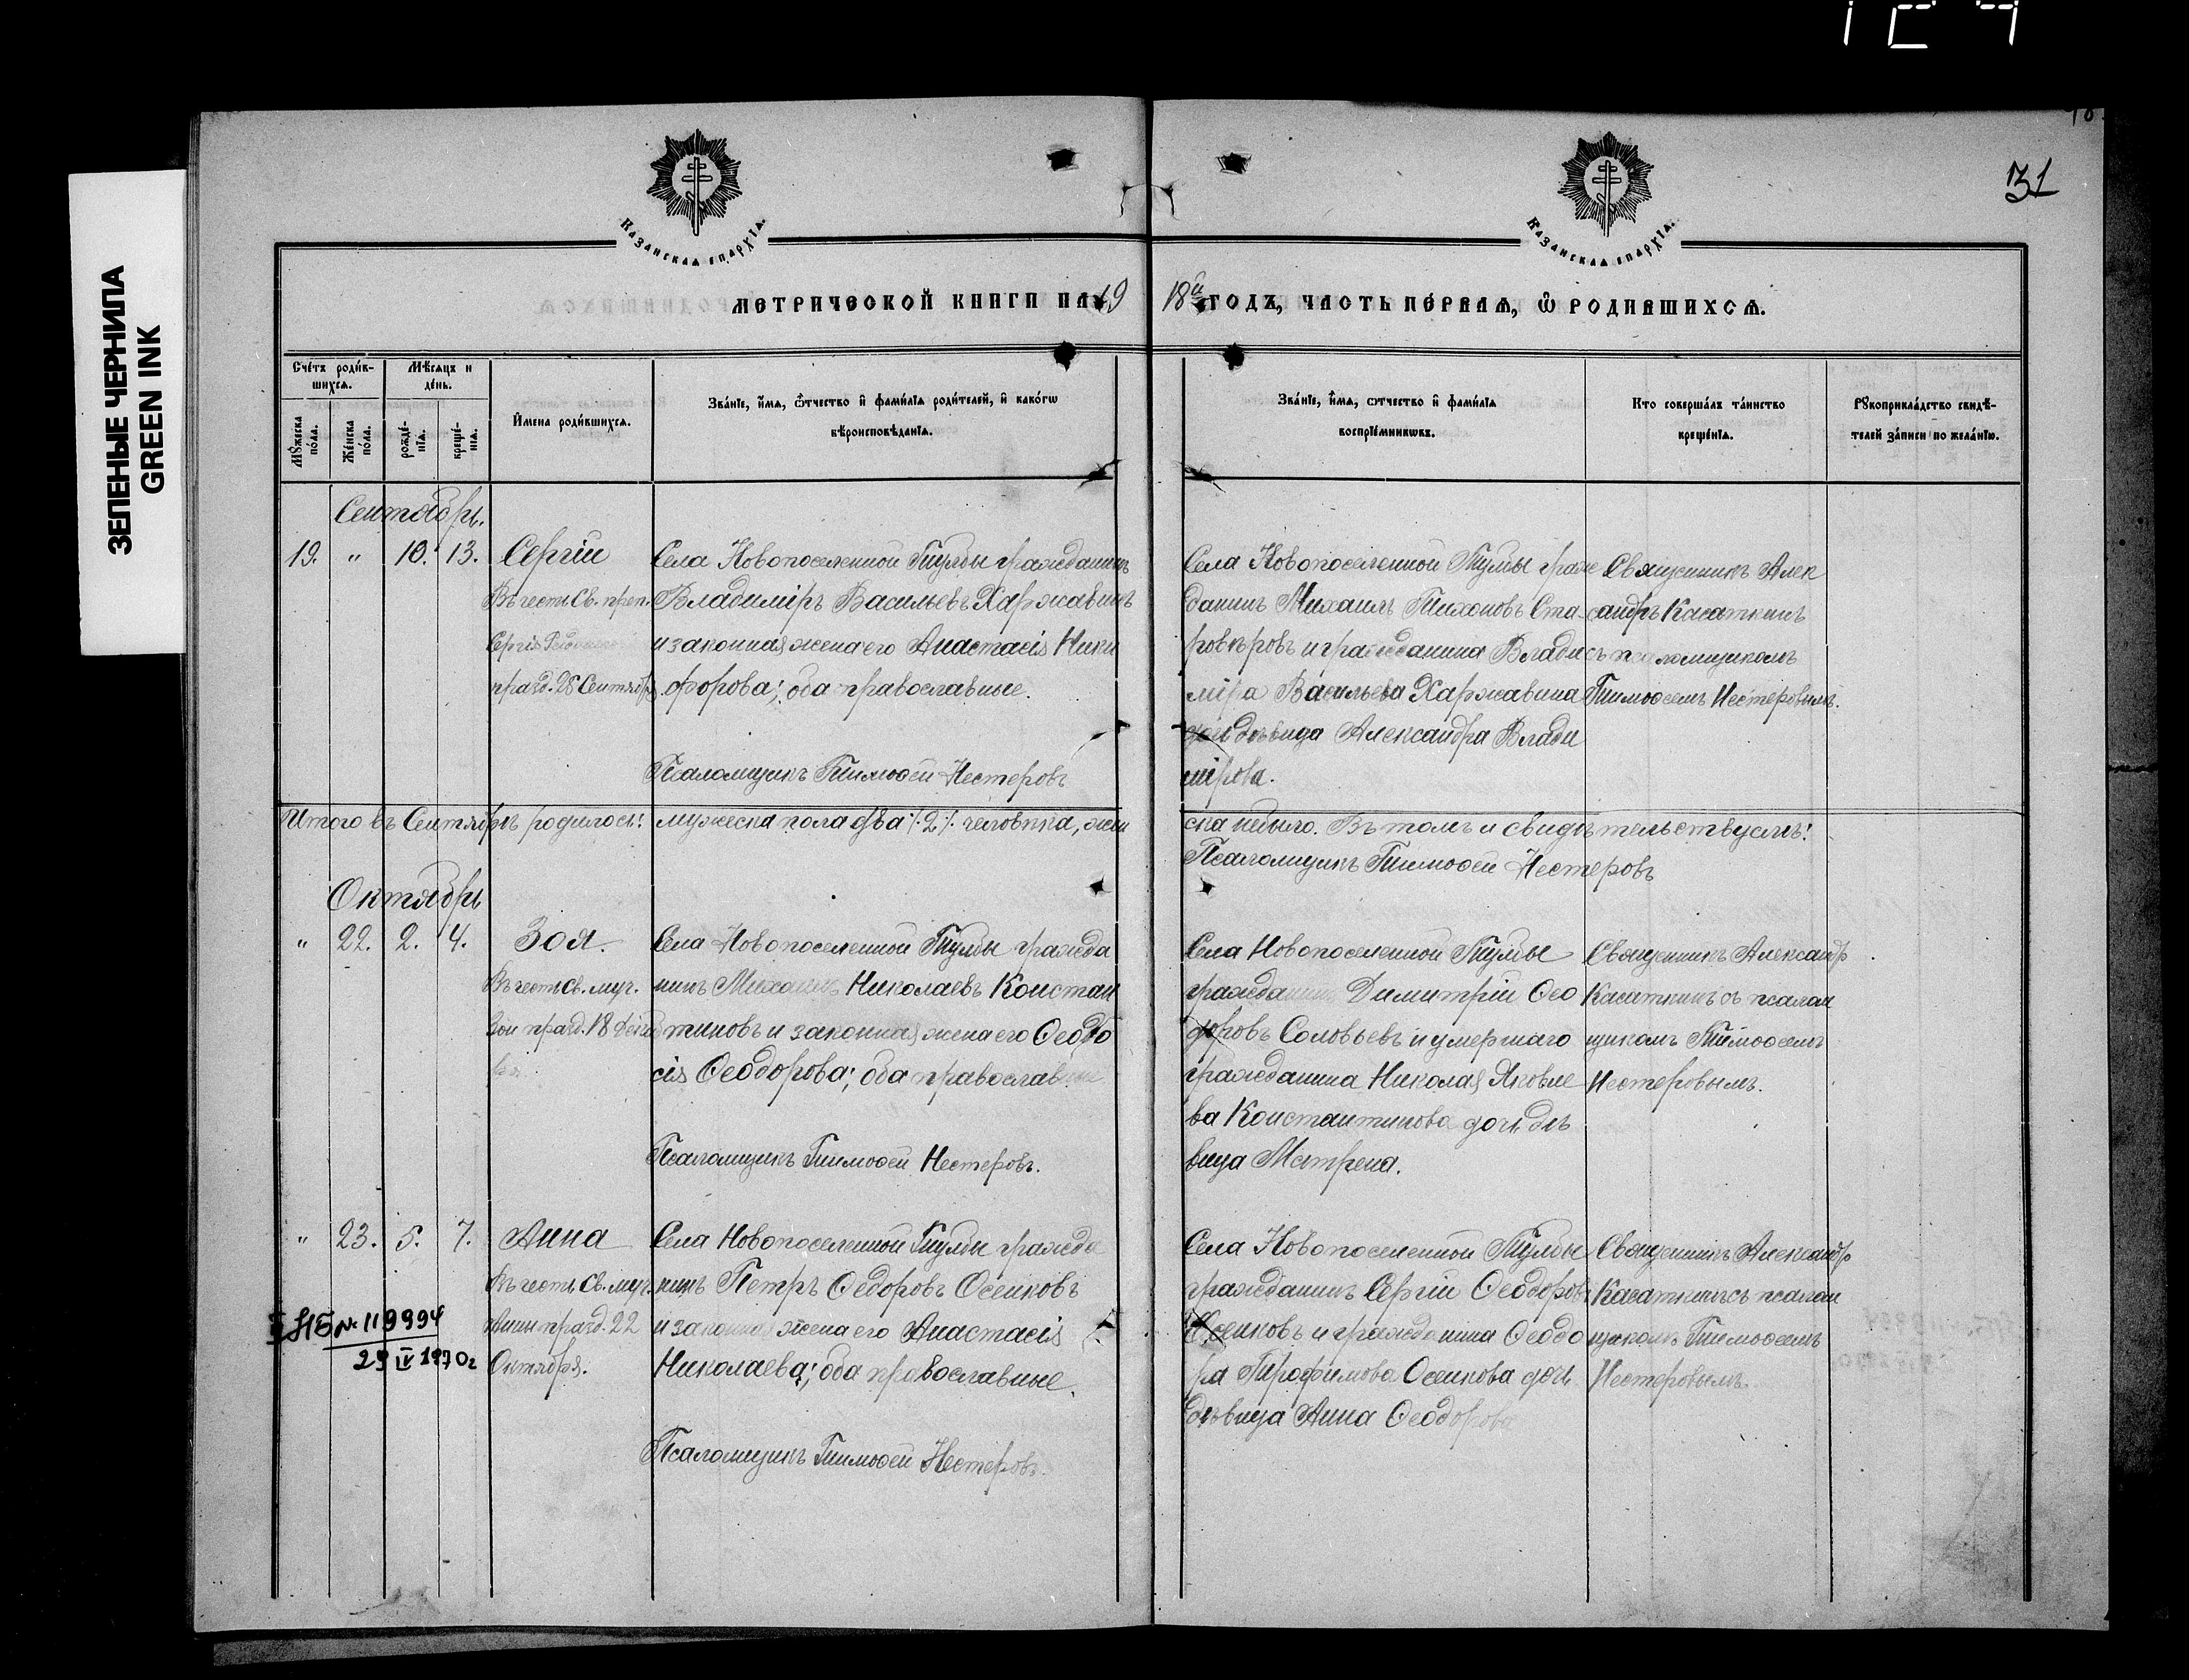 ЗЕЛЕНЫЕ ЧЕРНИЛА
GREEN INK
31
Казанская епархїѧ.
Казанская епархїѧ.
МЕТРИЧЕСКОЙ КНИГИ НА 19
18й ГОДЪ, ЧАСТЬ ПЕРВАЯ, Ѽ РОДИВШИХСЯ.
Сче́тъ роди́в-
шихсѧ.
Мѣ́сѧцъ и
де́нь.
Мꙋ́жеска
по́ла.
Же́нска
по́ла.
рожде́-
нїѧ.
креще́-
нїѧ.
И҆мена роди́вшихсѧ.
Зва́нїе, и҆́мѧ, ѻ҆́тчество и҆ фами́лїѧ роди́телей, и҆ како́гѡ
вѣроисповѣ́данїѧ.
Зва́нїе, и҆́мѧ, ѻтчество и҆ фами́лїѧ
воспрїе́мникѡвъ.
Кто соверша́лъ та́инство
креще́нїѧ.
Рꙋкоприкла́дство свидѣ́-
телей за́писи по жела́нїю.
Сентябрь.
19. " 10. 13. Сергій
Въ честь Св. преп.
празд. 28 Сентябр
Села Новопоселенной Тульбы гражданинъ
Владиміръ Васильевъ Харжавинъ
и законная жена его Анастасія Ники
форова; оба православные.
Псаломщикъ Тимоѳей Нестеровъ
Села Новопоселенной Тульбы граж
данинъ Михаилъ Тихоновъ Ста-
ровѣровъ и гражданина Влади
міра Васильева Харжавина
дочь дѣвица Александра Влади
мірова.
Священникъ Алек
сандръ Касаткинъ
съ псаломщикомъ
Тимоѳеемъ Нестеровымъ.
Итого въ Сентябрѣ родилось: мужеска пола два /:2/: человѣка, жен
ска небыло. Въ томъ и свидѣтельствуемъ:
Псаломщикъ Тимоѳей Нестеровъ
Октябрь
" 22. 2. 4. Зоя.
Въ честь Св. муч.
Зои празд. 18 Дека
бря.
Села Новопоселенной Тульбы гражда
нинъ Михаилъ Николаевъ Констан
тиновъ и законная жена его Ѳеодо
сія Ѳеодорова; оба православные
Псаломщикъ Тимоѳей Нестеровъ.
Села Новопоселенной Тульбы
гражданинъ Димитрій Ѳео
доровъ Соловьевъ и умершаго
гражданина Николая Яковле
ва Константинова дочь дѣ
вица Матрена.
Священникъ Александр
Касаткинъ съ псалом
щикомъ Тимоѳеемъ
Нестеровымъ.
" 23. 5. 7. Анна
Въ честь Св. муч.
Анны празд. 22
Октября.
№ 119994
29 IV 1970г
Села Новопоселенной Тульбы гражда
нинъ Петръ Ѳедоровъ Осенковъ
и законная жена его Анастасія
Николаева; оба православные.
Псаломщикъ Тимоѳей Нестеровъ.
Села Новопоселенной Тульбы
гражданинъ Сергій Ѳеодоровъ
Осенковъ и гражданина Ѳеодо
ра Трофимова Осенкова дочь
дѣвица Анна Ѳеодорова
Священникъ Александр
Касаткинъ съ псалом
щикомъ Тимоѳеемъ
Нестеровымъ.